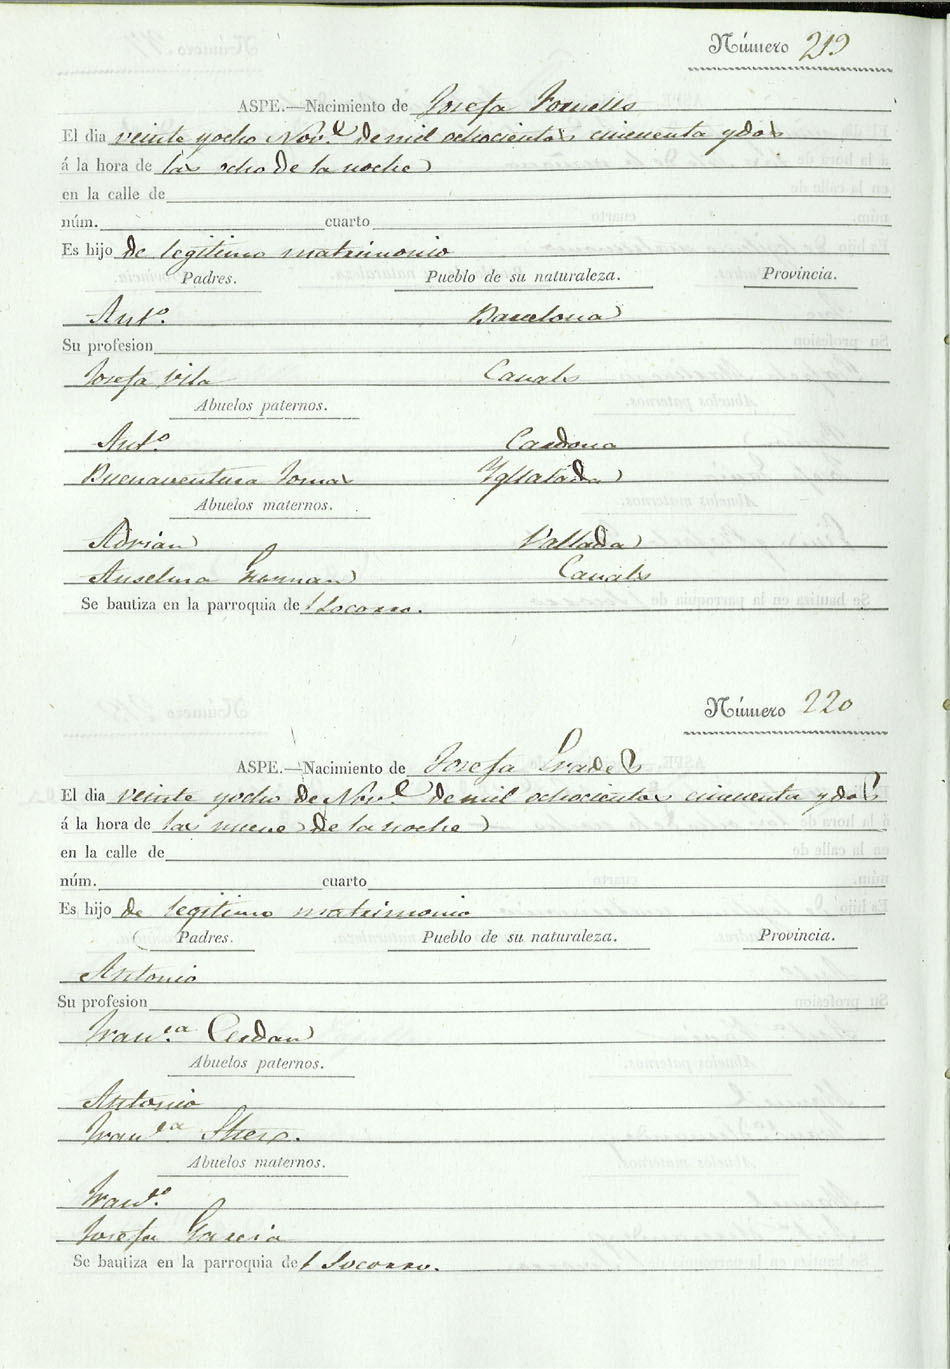 Número 219
ASPE.—Nacimiento de Josefa Fornells
El dia veinte y ocho Nov.e de mil ochocientos cincuenta y dos
á la hora de las ocho de la noche
en la calle de
núm. cuarto
Es hijo de legitimo matrimonio
Padres. Pueblo de su naturaleza. Provincia.
Ant.o Barcelona
Su profesion
Josefa Vila Canals
Abuelos paternos.
Ant.o Cardona
Buenaventura Tomas Ygualada
Abuelos maternos.
Adrian Vallada
Anselma Canals
Se bautiza en la parroquia de Socorro.
Número 220
ASPE.—Nacimiento de Josefa Prades
El dia veinte y ocho de Nov.e de mil ochocientos cincuenta y dos
á la hora de las nueve de la noche
en la calle de
núm. cuarto
Es hijo de legitimo matrimonio
Padres. Pueblo de su naturaleza. Provincia.
Antonio
Su profesion
Fran.ca Cerdan
Abuelos paternos.
Antonio
Fran.ca
Abuelos maternos.
Fran.co
Josefa Garcia
Se bautiza en la parroquia de Socorro.